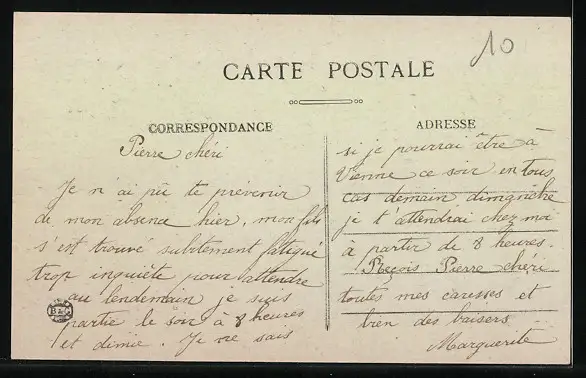 10
CARTE POSTALE
CORRESPONDANCE
Pierre chéri
Je n'ai pu te prévenir
de mon absence hier, mon fils
s'est trouvé subitement fatigué
trop inquiète pour attendre
au lendemain je suis
partie le soir à 8 heures
et demie. Je ne sais
ADRESSE
si je pourrai être à
Vienne ce soir en tous
cas demain dimanche
je t'attendrai chez moi
à partir de 8 heures.
Reçois Pierre chéri
toutes mes caresses et
bien des baisers
Marguerite